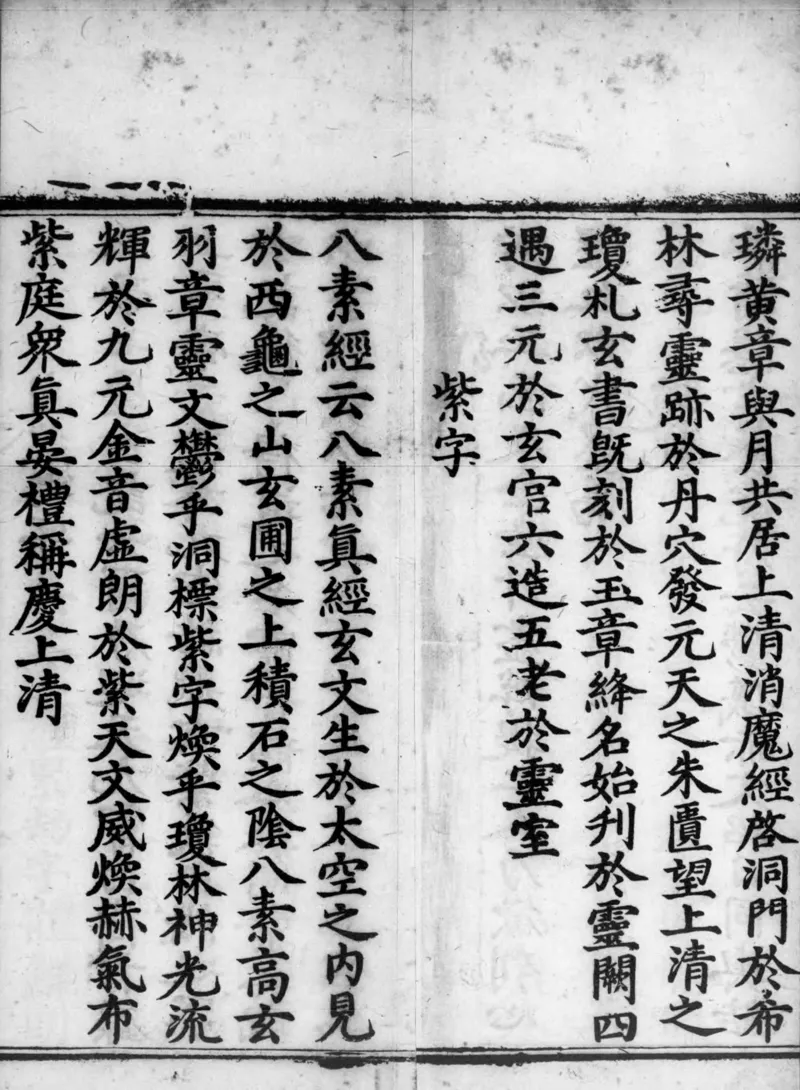 璘黄章與月共居上清消魔經啓洞門於希
林尋靈跡於丹穴發元天之朱匱望上清之
瓊札玄書旣刻於玉章絳名始刋於靈闕四
遇三元於玄宫六造五老於靈室
紫字
八素經云八素眞經玄文生於太空之内見
於西龜之山玄圃之上積石之隂八素高玄
羽章靈文鬱乎洞標紫字煥乎瓊林神光流
輝於九元金音虛朗於紫天文威煥赫氣布
紫庭衆眞晏禮稱慶上清